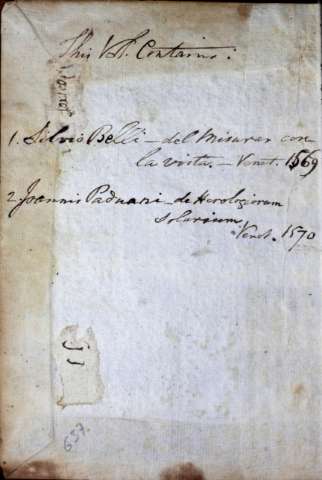 This Vol. Contains.
1. Silvio Belli – del Misurar con
la vista. – Venet. 1569
2 Joannis Paduani – de Horologiorum
Solarium
Venet. 1570
637.